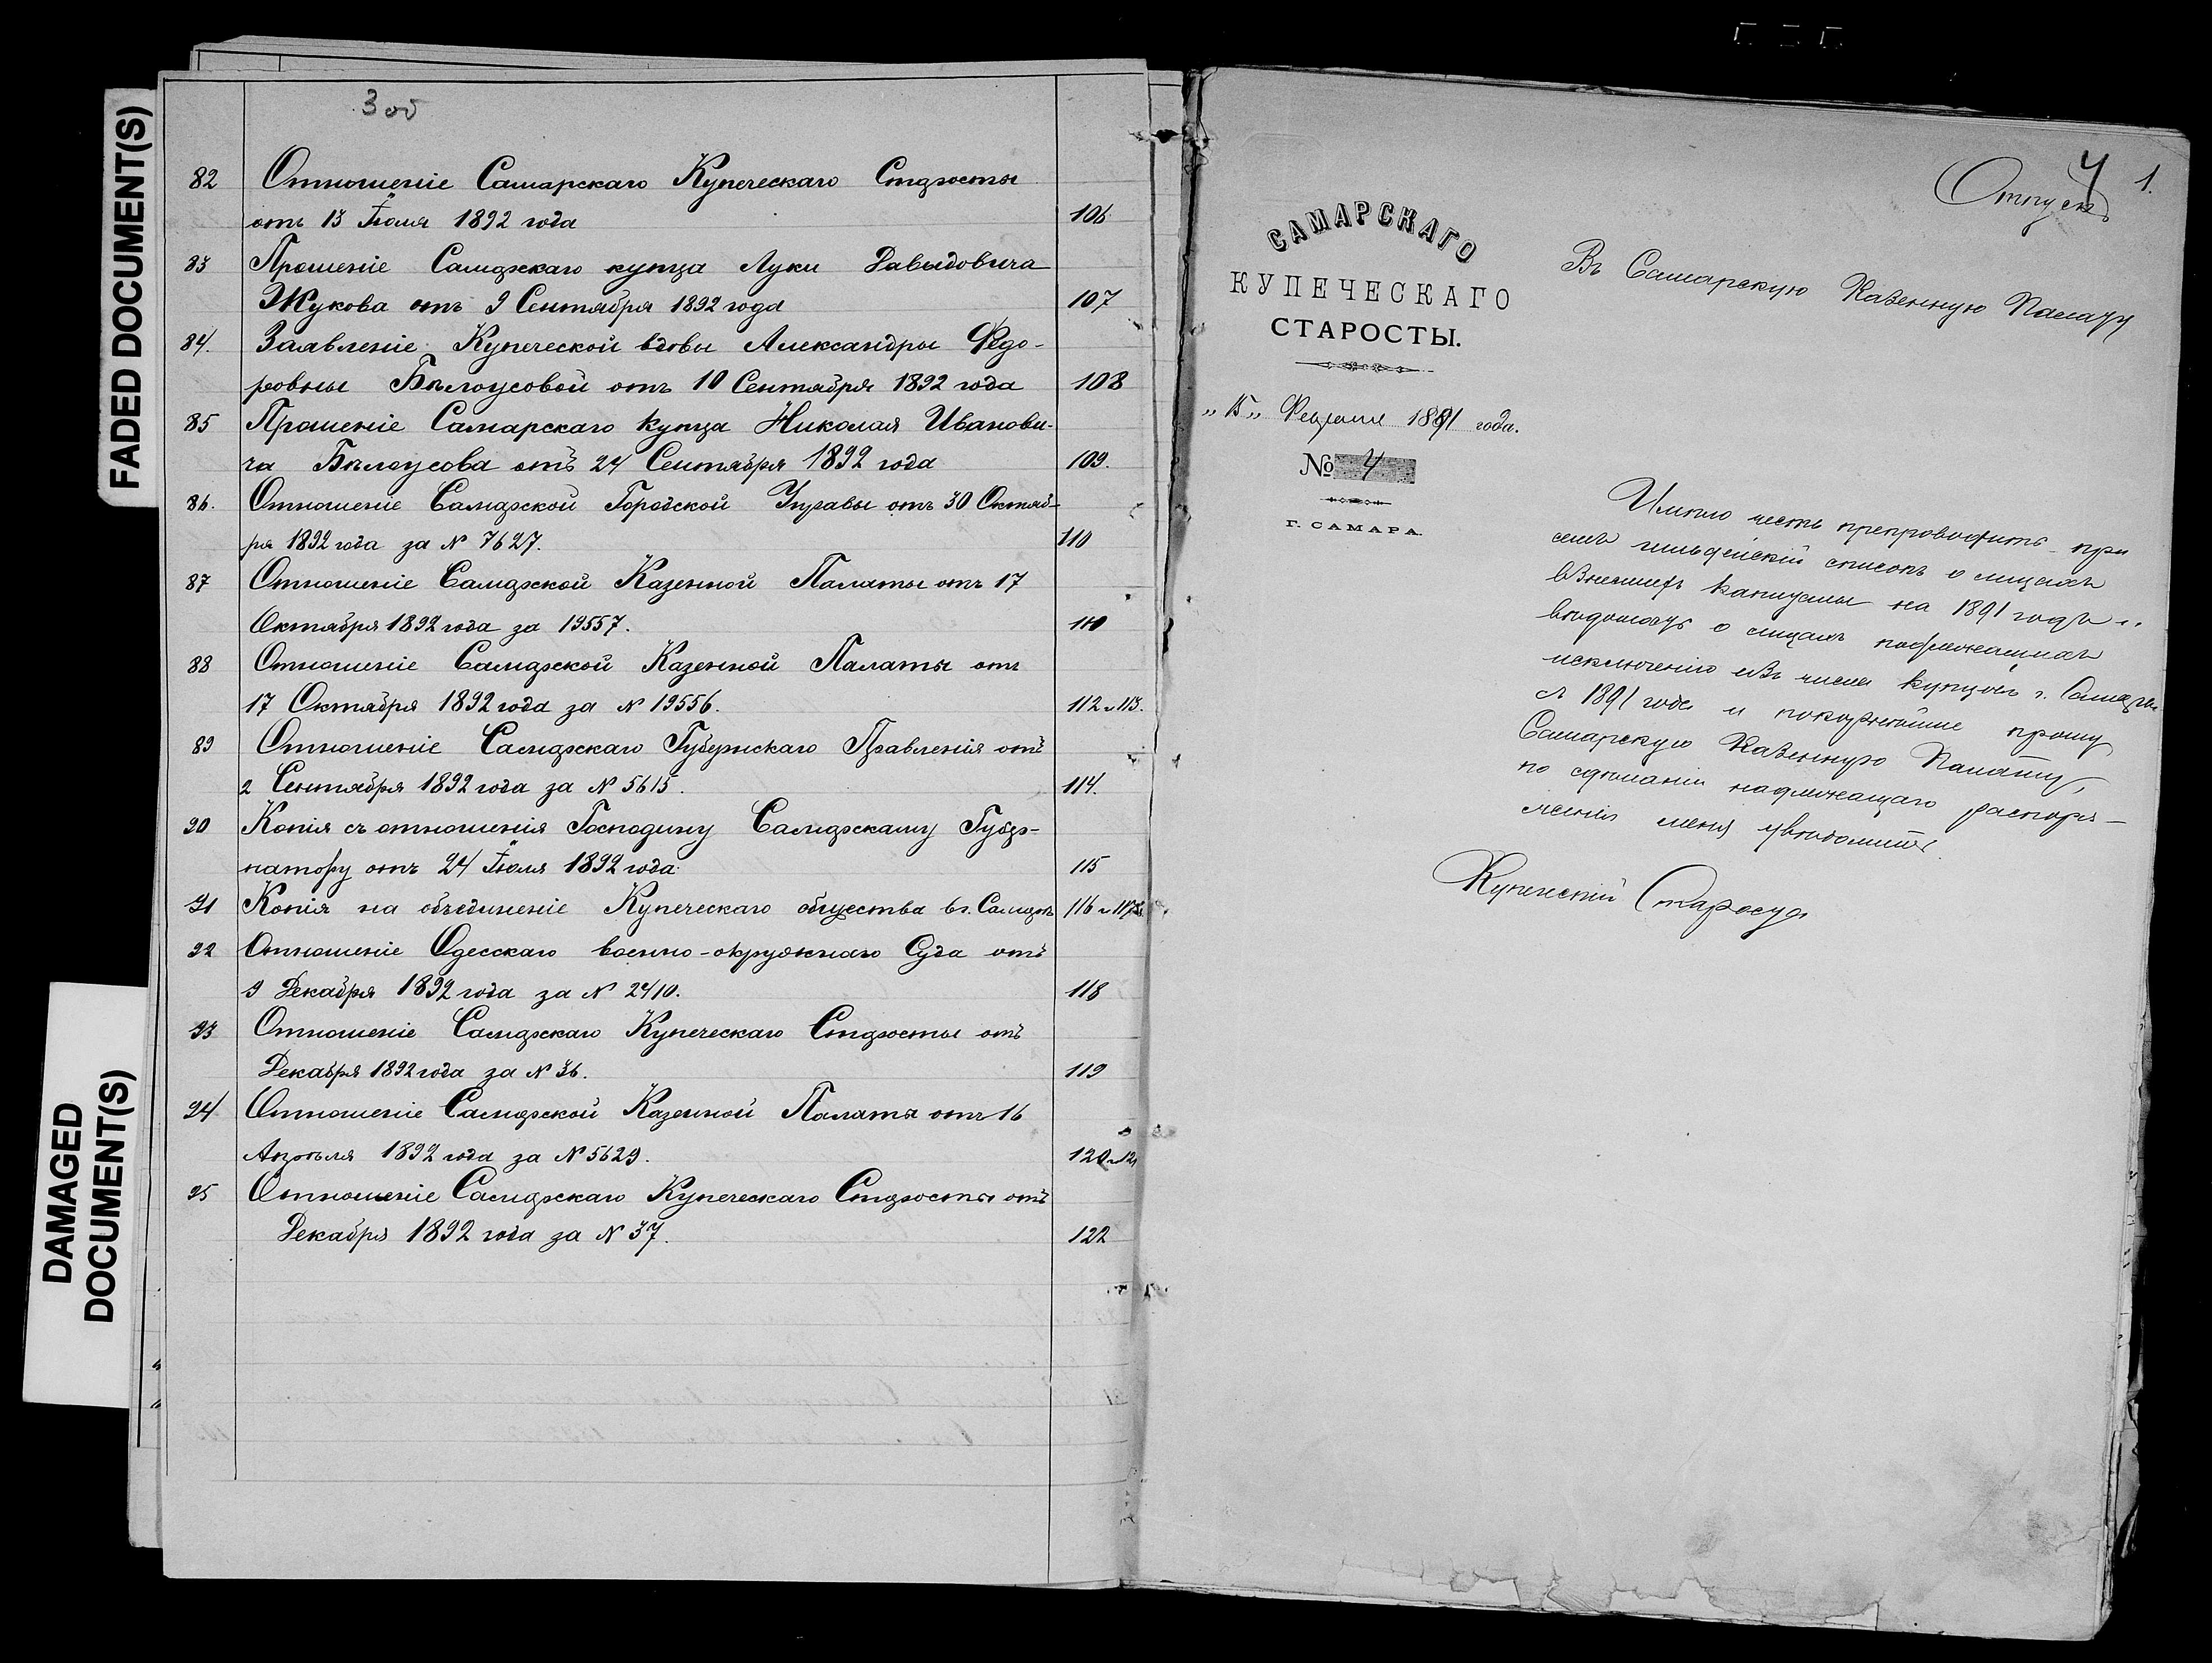 FADED DOCUMENT(S)
DAMAGED
DOCUMENT(S)
3 об
82 Отношеніе Самарскаго Купеческаго Старосты
отъ 13 Іюля 1892 года 106
83 Прошеніе Самарскаго купца Луки Давыдовича
Жукова отъ 9 Сентября 1892 года 107
84. Заявленіе Купеческой вдовы Александры Федо-
ровны Бѣлоусовой отъ 10 Сентября 1892 года 108
85 Прошеніе Самарскаго купца Николая Иванови-
ча Бѣлоусова отъ 24 Сентября 1892 года 109.
86. Отношеніе Самарской Городской Управы отъ 30 Октяб-
ря 1892 года за № 7627. 110
87 Отношеніе Самарской Казенной Палаты отъ 17
Октября 1892 года за 19557.
88 Отношеніе Самарской Казенной Палаты отъ
17 Октября 1892 года за № 19556. 112 и 113.
89 Отношеніе Самарскаго Губернскаго Правленія отъ
2 Сентября 1892 года за № 5615. 114.
90 Копія съ отношенія Господину Самарскому Губер-
натору отъ 24 Іюля 1892 года 115
91 Копія на объединеніе Купеческаго общества въ г. Самарѣ 116 и 117
92 Отношеніе Одесскаго военно-окружнаго Суда отъ
9 Декабря 1892 года за № 2410. 118
93 Отношеніе Самарскаго Купеческаго Старосты отъ
Декабря 1892 года за № 36. 119
94 Отношеніе Самарской Казенной Палаты отъ 16
Апрѣля 1892 года за № 5629. 120 и 121
95 Отношеніе Самарскаго Купеческаго Старосты отъ
Декабря 1892 года за № 37. 122
4 1.
Отпускъ
САМАРСКАГО
КУПЕЧЕСКАГО
СТАРОСТЫ.
„15„ Февраля 1891 года.
№ 4
Г. САМАРА.
Въ Самарскую Казенную Палату
Имѣю честь препроводить при
семъ гильдейскій списокъ о лицахъ
взнесшихъ капиталы на 1891 годъ и
вѣдомость о лицахъ подлежащихъ
исключенію изъ числа купцовъ г. Самары
съ 1891 года и покорнѣйше прошу
Самарскую Казенную Палату,
по сдѣланіи надлежащаго распоря-
женія меня увѣдомить.
Купеческій Староста